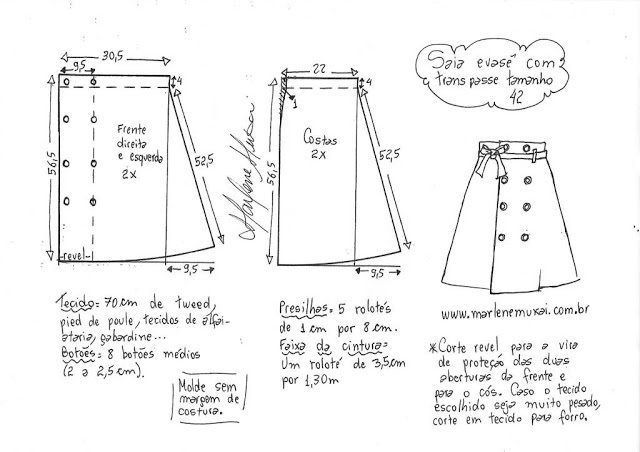 30,5
9,5
4
Frente
direita
e esquerda
2x
56,5
52,5
revel
9,5
Marlene Mukai
22
4
1
Costas
2x
56,5
52,5
9,5
Saia evasê com
transpasse tamanho
42
www.marlenemukai.com.br
Tecido= 70cm de tweed,
pied de poule, tecidos de alfai-
ataria, gabardine...
Botões= 8 botões médios
(2 a 2,5cm).
Molde sem
margem de
costura.
Presilhas= 5 rolotês
de 1cm por 8cm.
Faixa da cintura=
Um roloté de 3,5cm
por 1,30m
*Corte revel para a vira
de proteção das duas
aberturas da frente e
para o cós. Caso o tecido
escolhido seja muito pesado,
corte em tecido para forro.